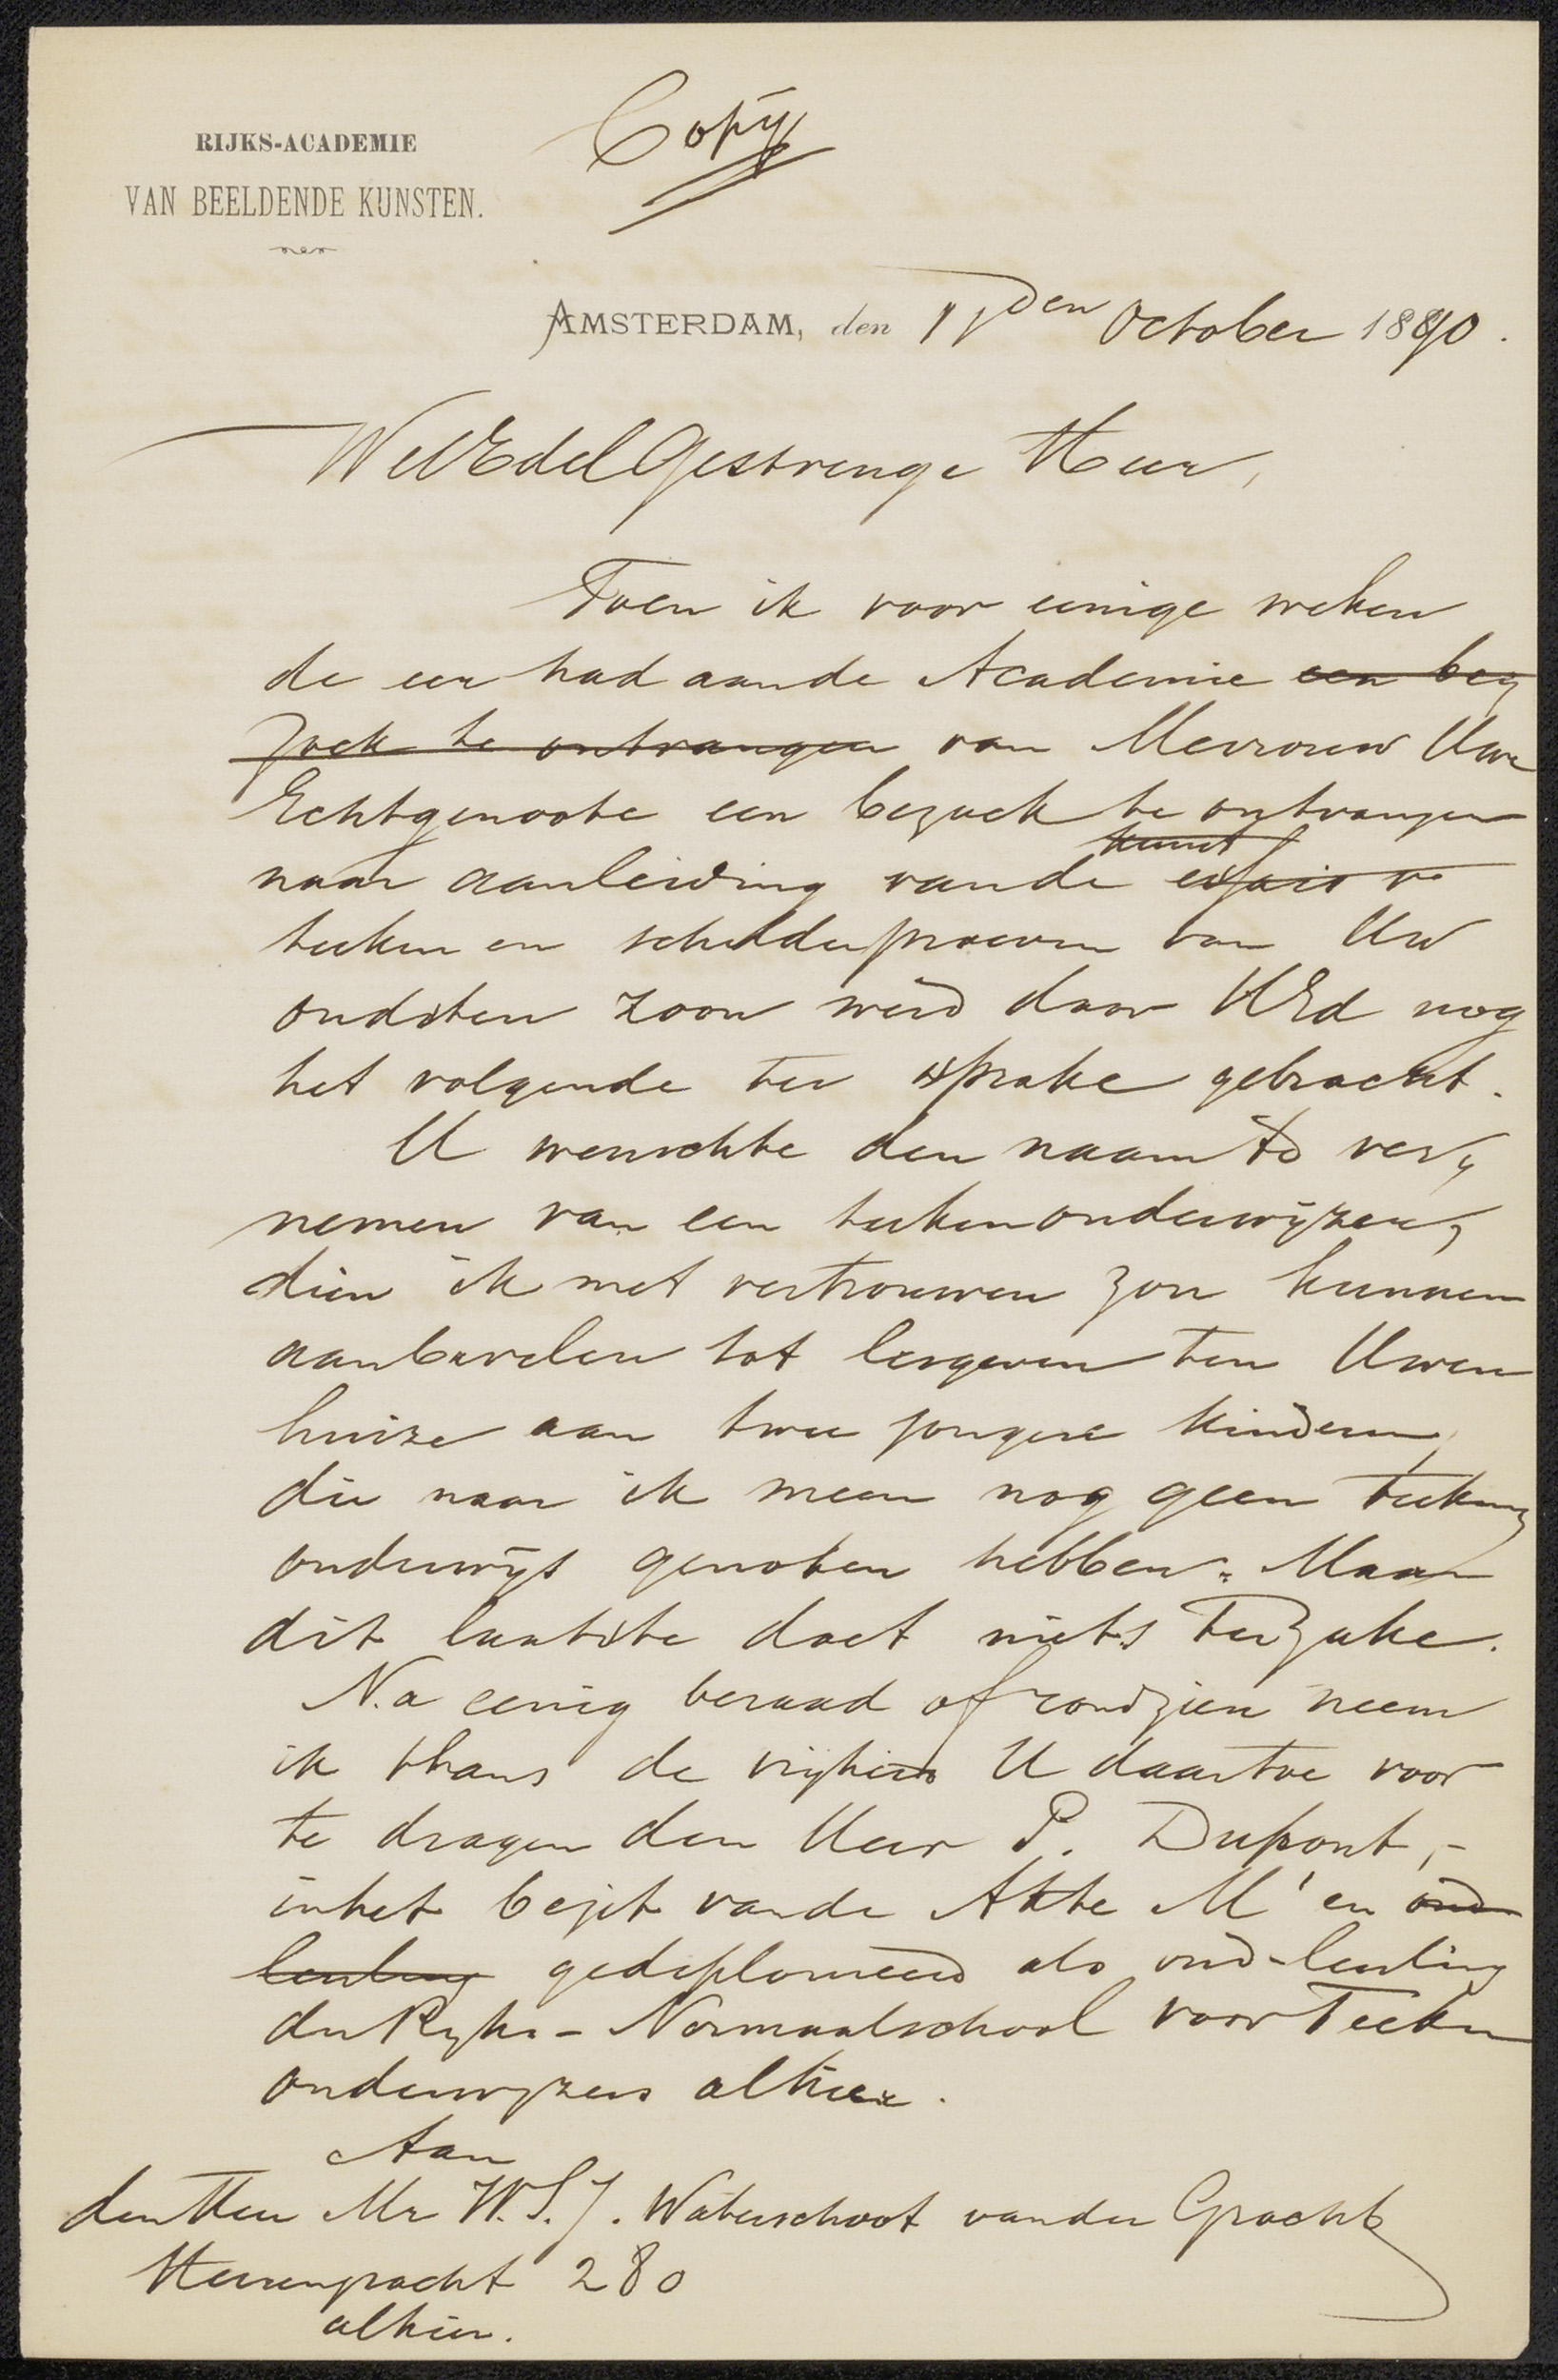 RIJKS-ACADEMIE
VAN BEELDENDE KUNSTEN.
Copÿ
AMSTERDAM, den 11den October 1890.
WelEdelGestrenge Heer,
Toen ik voor eenige weken
de eer had aan de Academie een be=
zoek te ontvangen van Mevrouw Uwe
Echtgenoote een bezoek te ontvangen
kunst
naar aanleiding van de
teeken en schilderproeven van Uw
oudsten zoon werd door HEd nog
het volgende ter sprake gebracht.
U wenschte den naam te ver=
nemen van een teekenonderwijzer,
dien ik met vertrouwen zou kunnen
aanbevelen tot lesgeven ten Uwen
huize aan twee jongere kinderen,
die naar ik meen nog geen teeken=
onderwijs genoten hebben. Maar
dit laatste doet niets ter zake.
Na eenig beraad of rondzien neem
ik thans de vrijheid U daartoe voor
te dragen den Heer P. Dupont,-
in het bezit van de Akte M' en oud
leerling gediplomeerd als oud-leerling
der Rijks-Normaalschool voor Teeken
onderwyzers alhier.
Aan
den Heer Mr W.S.J. Waterschoot van der Gracht
Heerengracht 280
alhier.